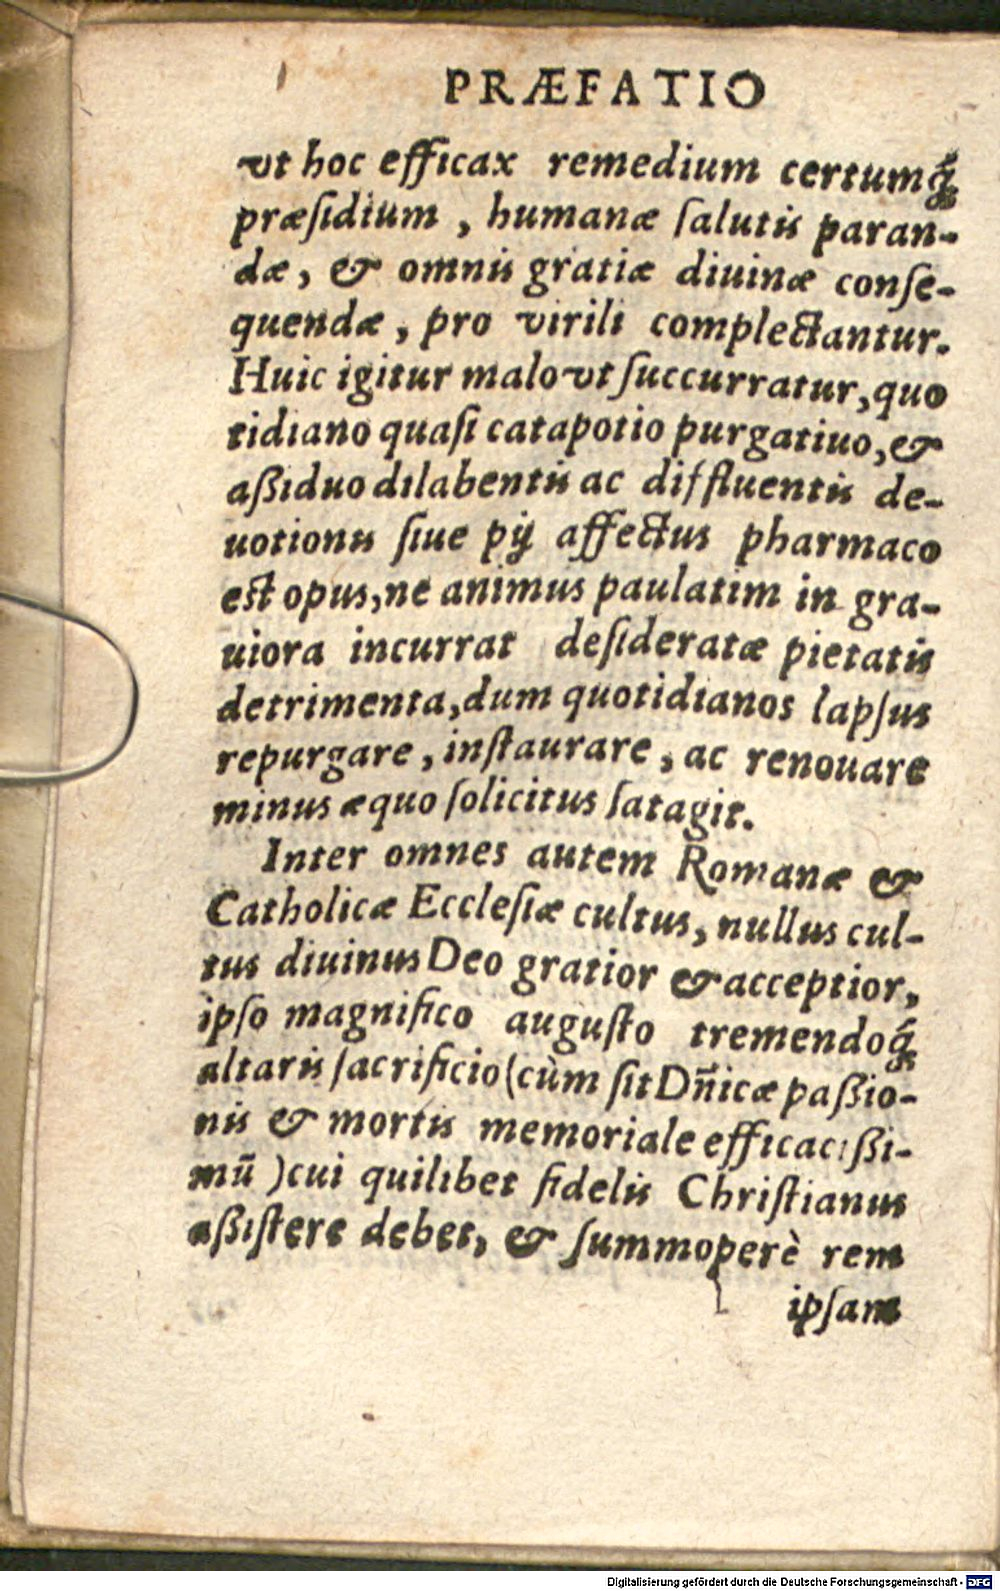 PRÆFATIO
vt hoc efficax remedium certumq́;
præſidium, humanæ ſalutis paran-
dæ, & omnis gratiæ diuinæ conſe-
quendæ, pro virili complectantur.
Huic igitur malo vt ſuccurratur, quo
tidiano quaſi catapotio purgatiuo, &
aßiduo dilabentis ac diffluentis de-
uotionis ſiue pij affectus pharmaco
eſt opus, ne animus paulatim in gra-
uiora incurrat deſideratæ pietatis
detrimenta, dum quotidianos lapſus
repurgare, inſtaurare, ac renouare
minus æquo ſolicitus ſatagit.
Inter omnes autem Romanæ &
Catholicæ Eccleſiæ cultus, nullus cul-
tus diuinus Deo gratior & acceptior,
ipſo magnifico auguſto tremendoq́;
altaris ſacrificio (cùm ſit Dn̄icæ paßio-
nis & mortis memoriale efficacißi-
mū) cui quilibet fidelis Chriſtianus
aßiſtere debet, & ſummoperè rem
ipſam
Digitalisierung gefördert durch die Deutsche Forschungsgemeinschaft - DFG